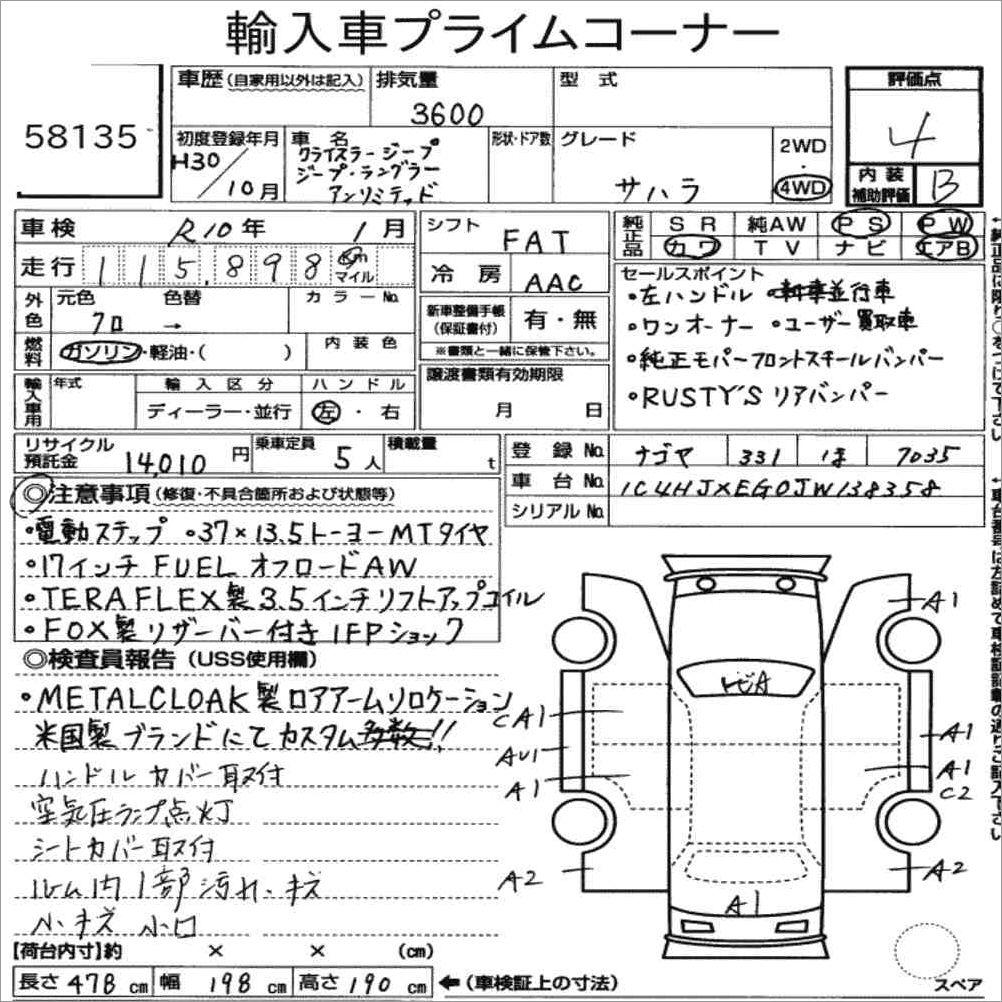 輸入車プライムコーナー
58135
車歴(自家用以外は記入) 排気量 3600 型式 評価点 4
初度登録年月 H30/10月 車名 クライスラージープ ジープ・ラングラー アンリミテッド 形状・ドア数 グレード サハラ 2WD・4WD 内装補助評価 B
車検 R10年 1月 シフト FAT 純正品 SR 純AW PS PW
走行 115,898 km マイル 冷房 AAC カワ TV ナビ エアB
外色 元色 クロ → 色替 カラーNo. 新車整備手帳(保証書付) 有・無
※書類と一緒に保管下さい。
燃料 ガソリン・軽油・( ) 内装色
セールスポイント
・左ハンドル ・新車並行車
・ワンオーナー ・ユーザー買取車
・純正モパーフロントスチールバンパー
・RUSTY'S リアバンパー
輸入車用 年式 輸入区分 ディーラー・並行 ハンドル 左・右 譲渡書類有効期限 月 日
リサイクル預託金 14,010円 乗車定員 5人 積載量 t
登録No. ナゴヤ 331 ほ 7035
車台No. 1C4HJXEG0JW138358
シリアルNo.
◎注意事項(修復・不具合箇所および状態等)
・電動ステップ ・37×13.5トーヨーMTタイヤ
・17インチ FUEL オフロードAW
・TERAFLEX製 3.5インチリフトアップコイル
・FOX製リザーバー付き IFPショック
◎検査員報告(USS使用欄)
・METALCLOAK製ロアアームリロケーション
米国製ブランドにてカスタム多数!!
ハンドルカバー取付
空気圧ランプ点灯
シートカバー取付
ルーム内1部汚れ・キズ
小キズ 小凹
A1
トビA
CA1
AU1
A1
A1
A1
C2
A2
A2
A1
スペア
【荷台内寸】約 × × (cm)
長さ 478 cm 幅 198 cm 高さ 190 cm ←(車検証上の寸法)